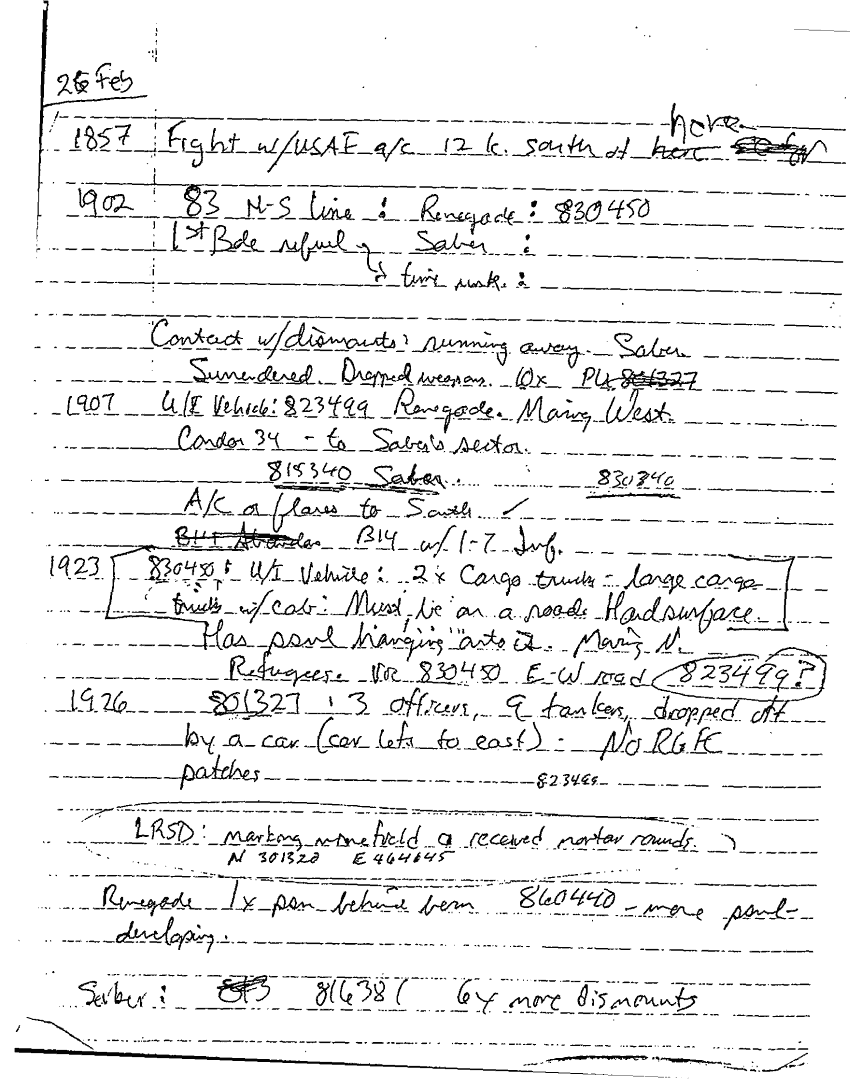 26 Feb
here
1857 Fight w/USAF a/c 12 k. south of here
1902 83 N-S line : Renegade : 830450
1st Bde refuel Saber :
time :
Contact w/dismounts: running away. Saber.
Surrendered. Dropped weapons. 10x 801327
1907 U/I Vehicle: 823499 Renegade. Moving West.
Condor 34 - to Saber's sector.
815340 Saber. 830340
A/C or flares to South ✓
B14 B14 w/ 1-7 Inf.
1923 830450: U/I Vehicle: 2x Cargo trucks - large cargo
trucks w/cab: Must be on a road. Hard surface.
Has psnl hanging onto it. Moving N.
Refugees. Vic 830450 E-W road 823499?
1926 801327 : 3 officers, 9 tankers, dropped off
by a car (car left to east) - No RGFC
patches 823499
LRSD: marking minefield received mortar rounds.
N 301320 E 464645
Renegade 1x psn behind berm 860440 - more psnl
developing.
Saber: 816381 6x more dismounts